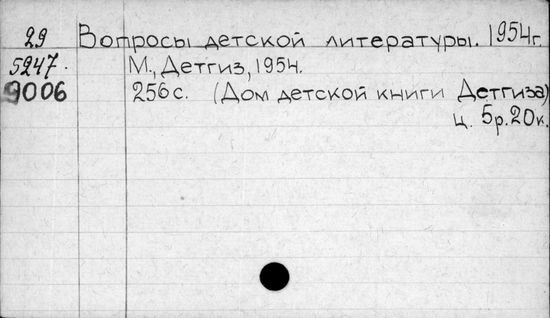 29 Вопросы детской литературы. 1954г.
5247. М., Детгиз, 1954.
9006 256 с. (Дом детской книги Детгиза)
ц. 5р.20к.